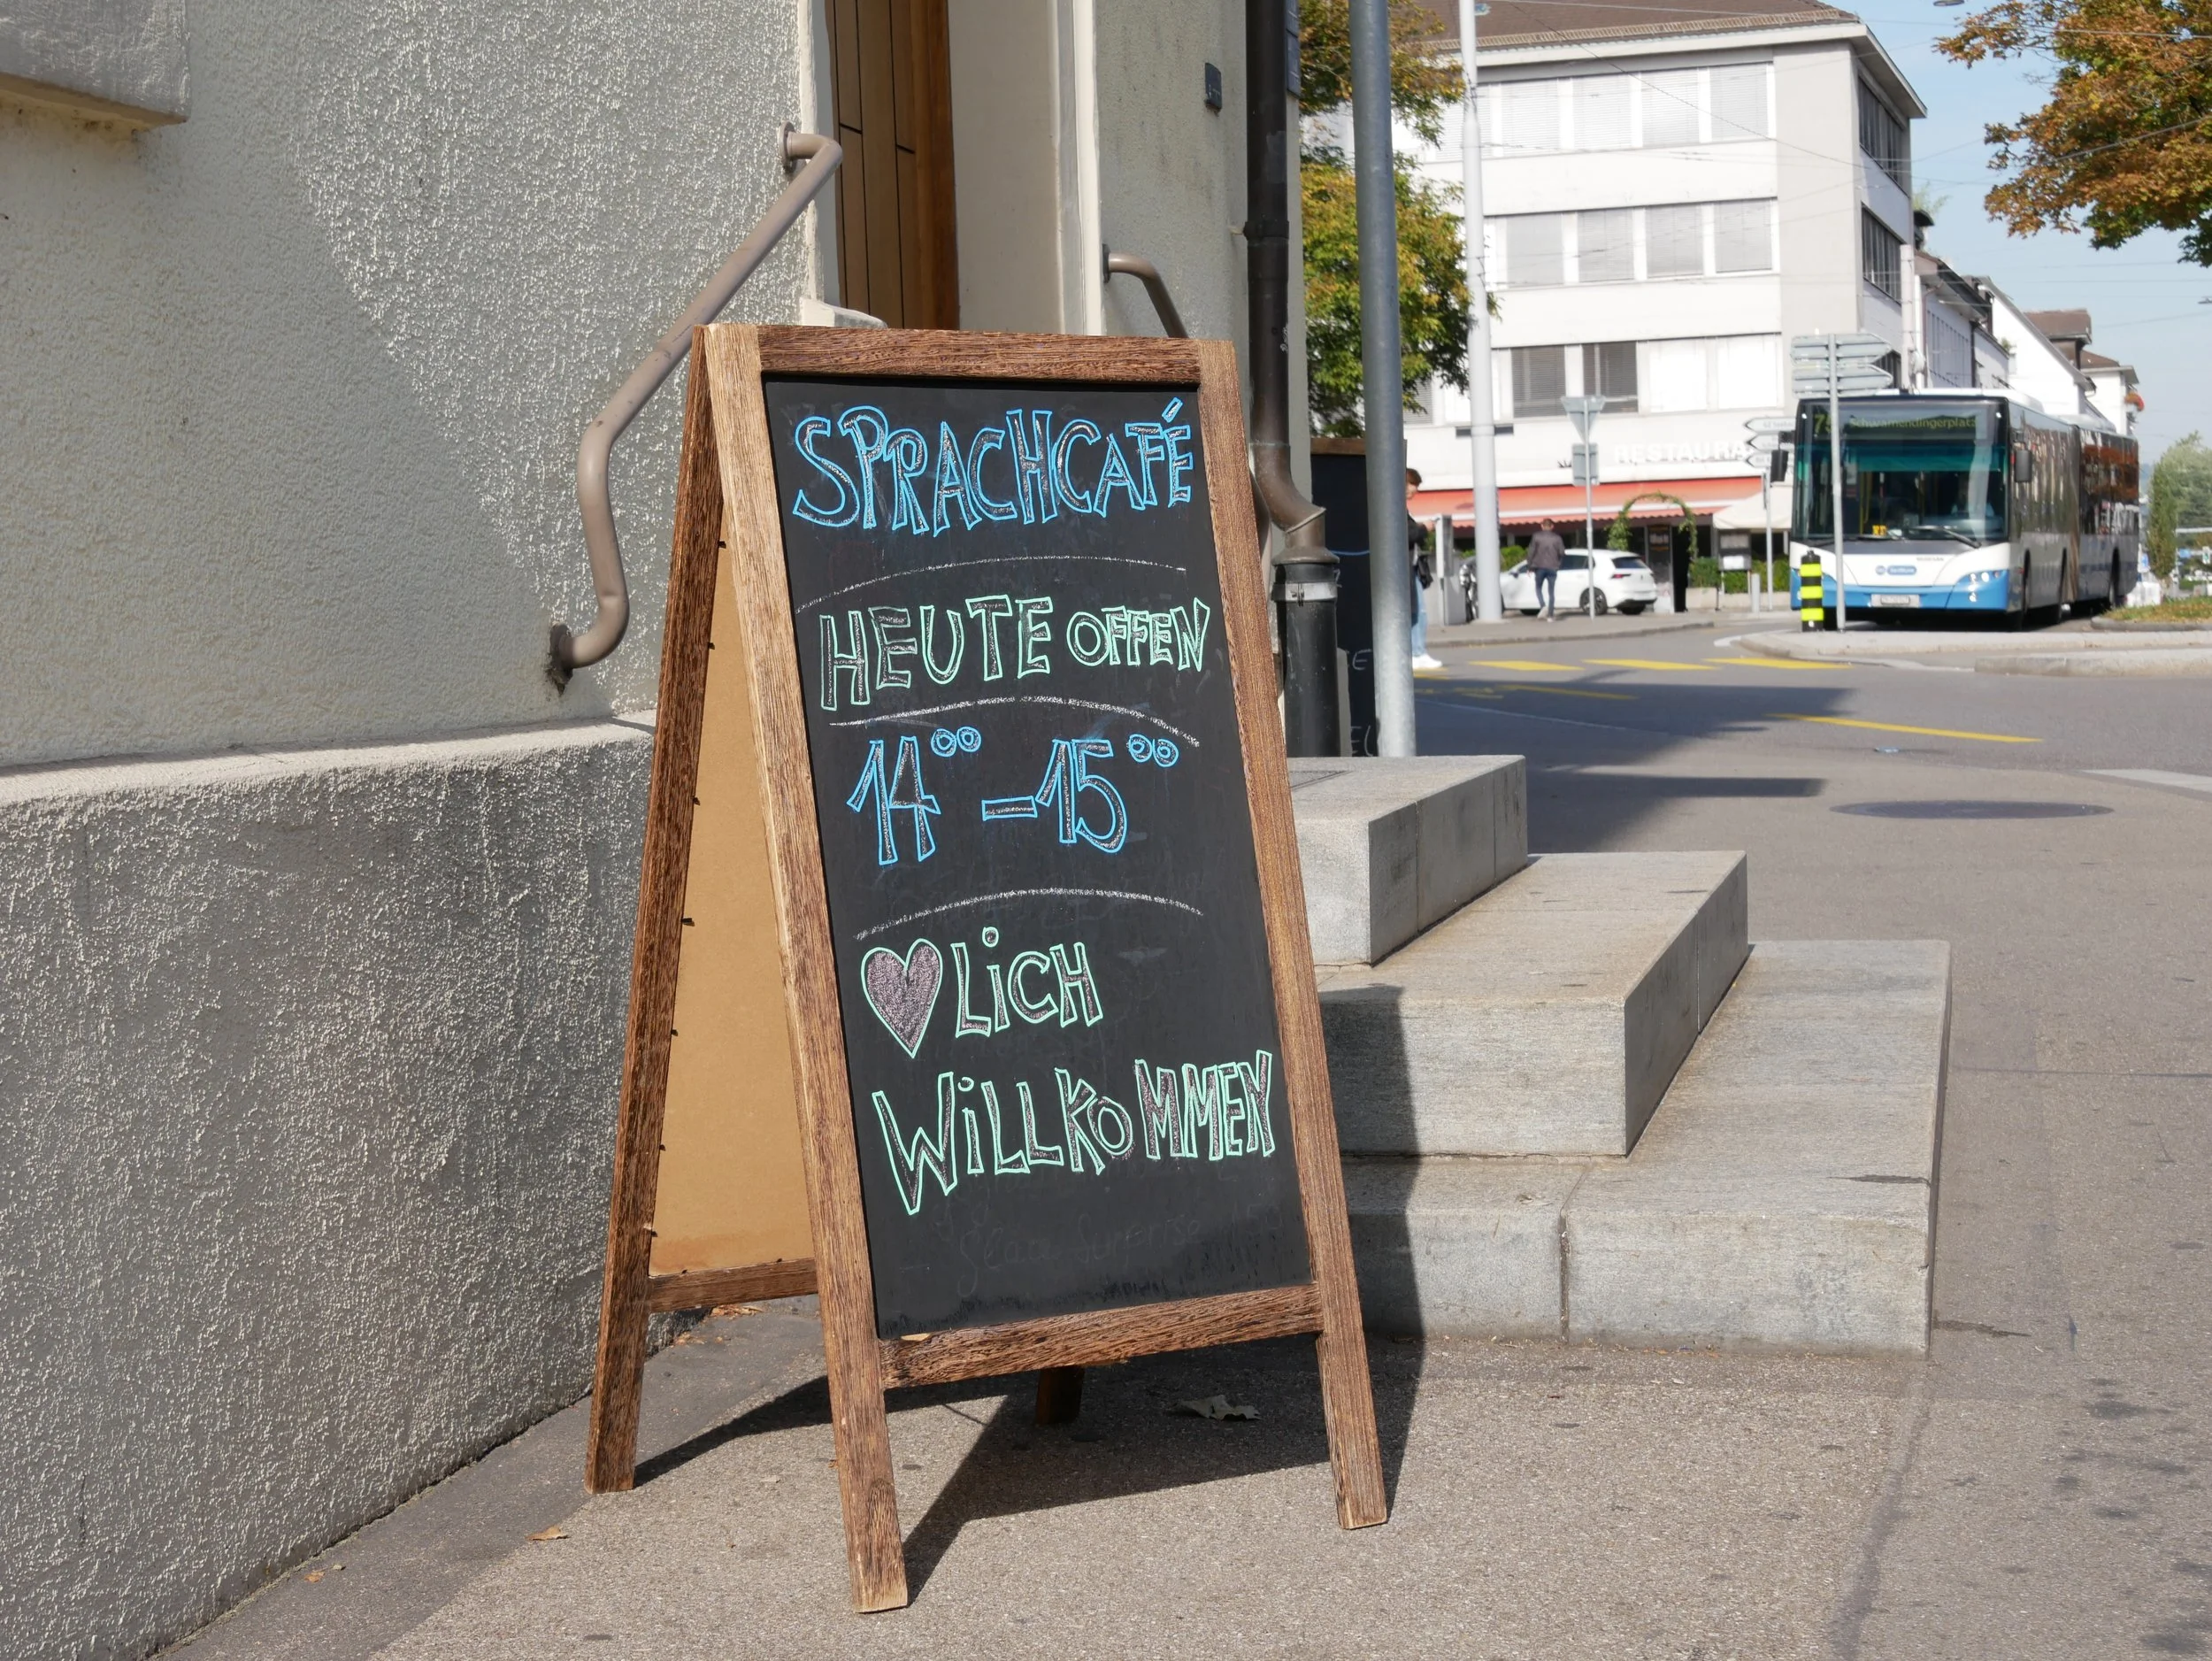 SPRACHCAFÉ
HEUTE OFFEN
14°° – 15°°
♥LiCH
WiLLKOMMEN
RESTAURA
Schwamendingerplatz